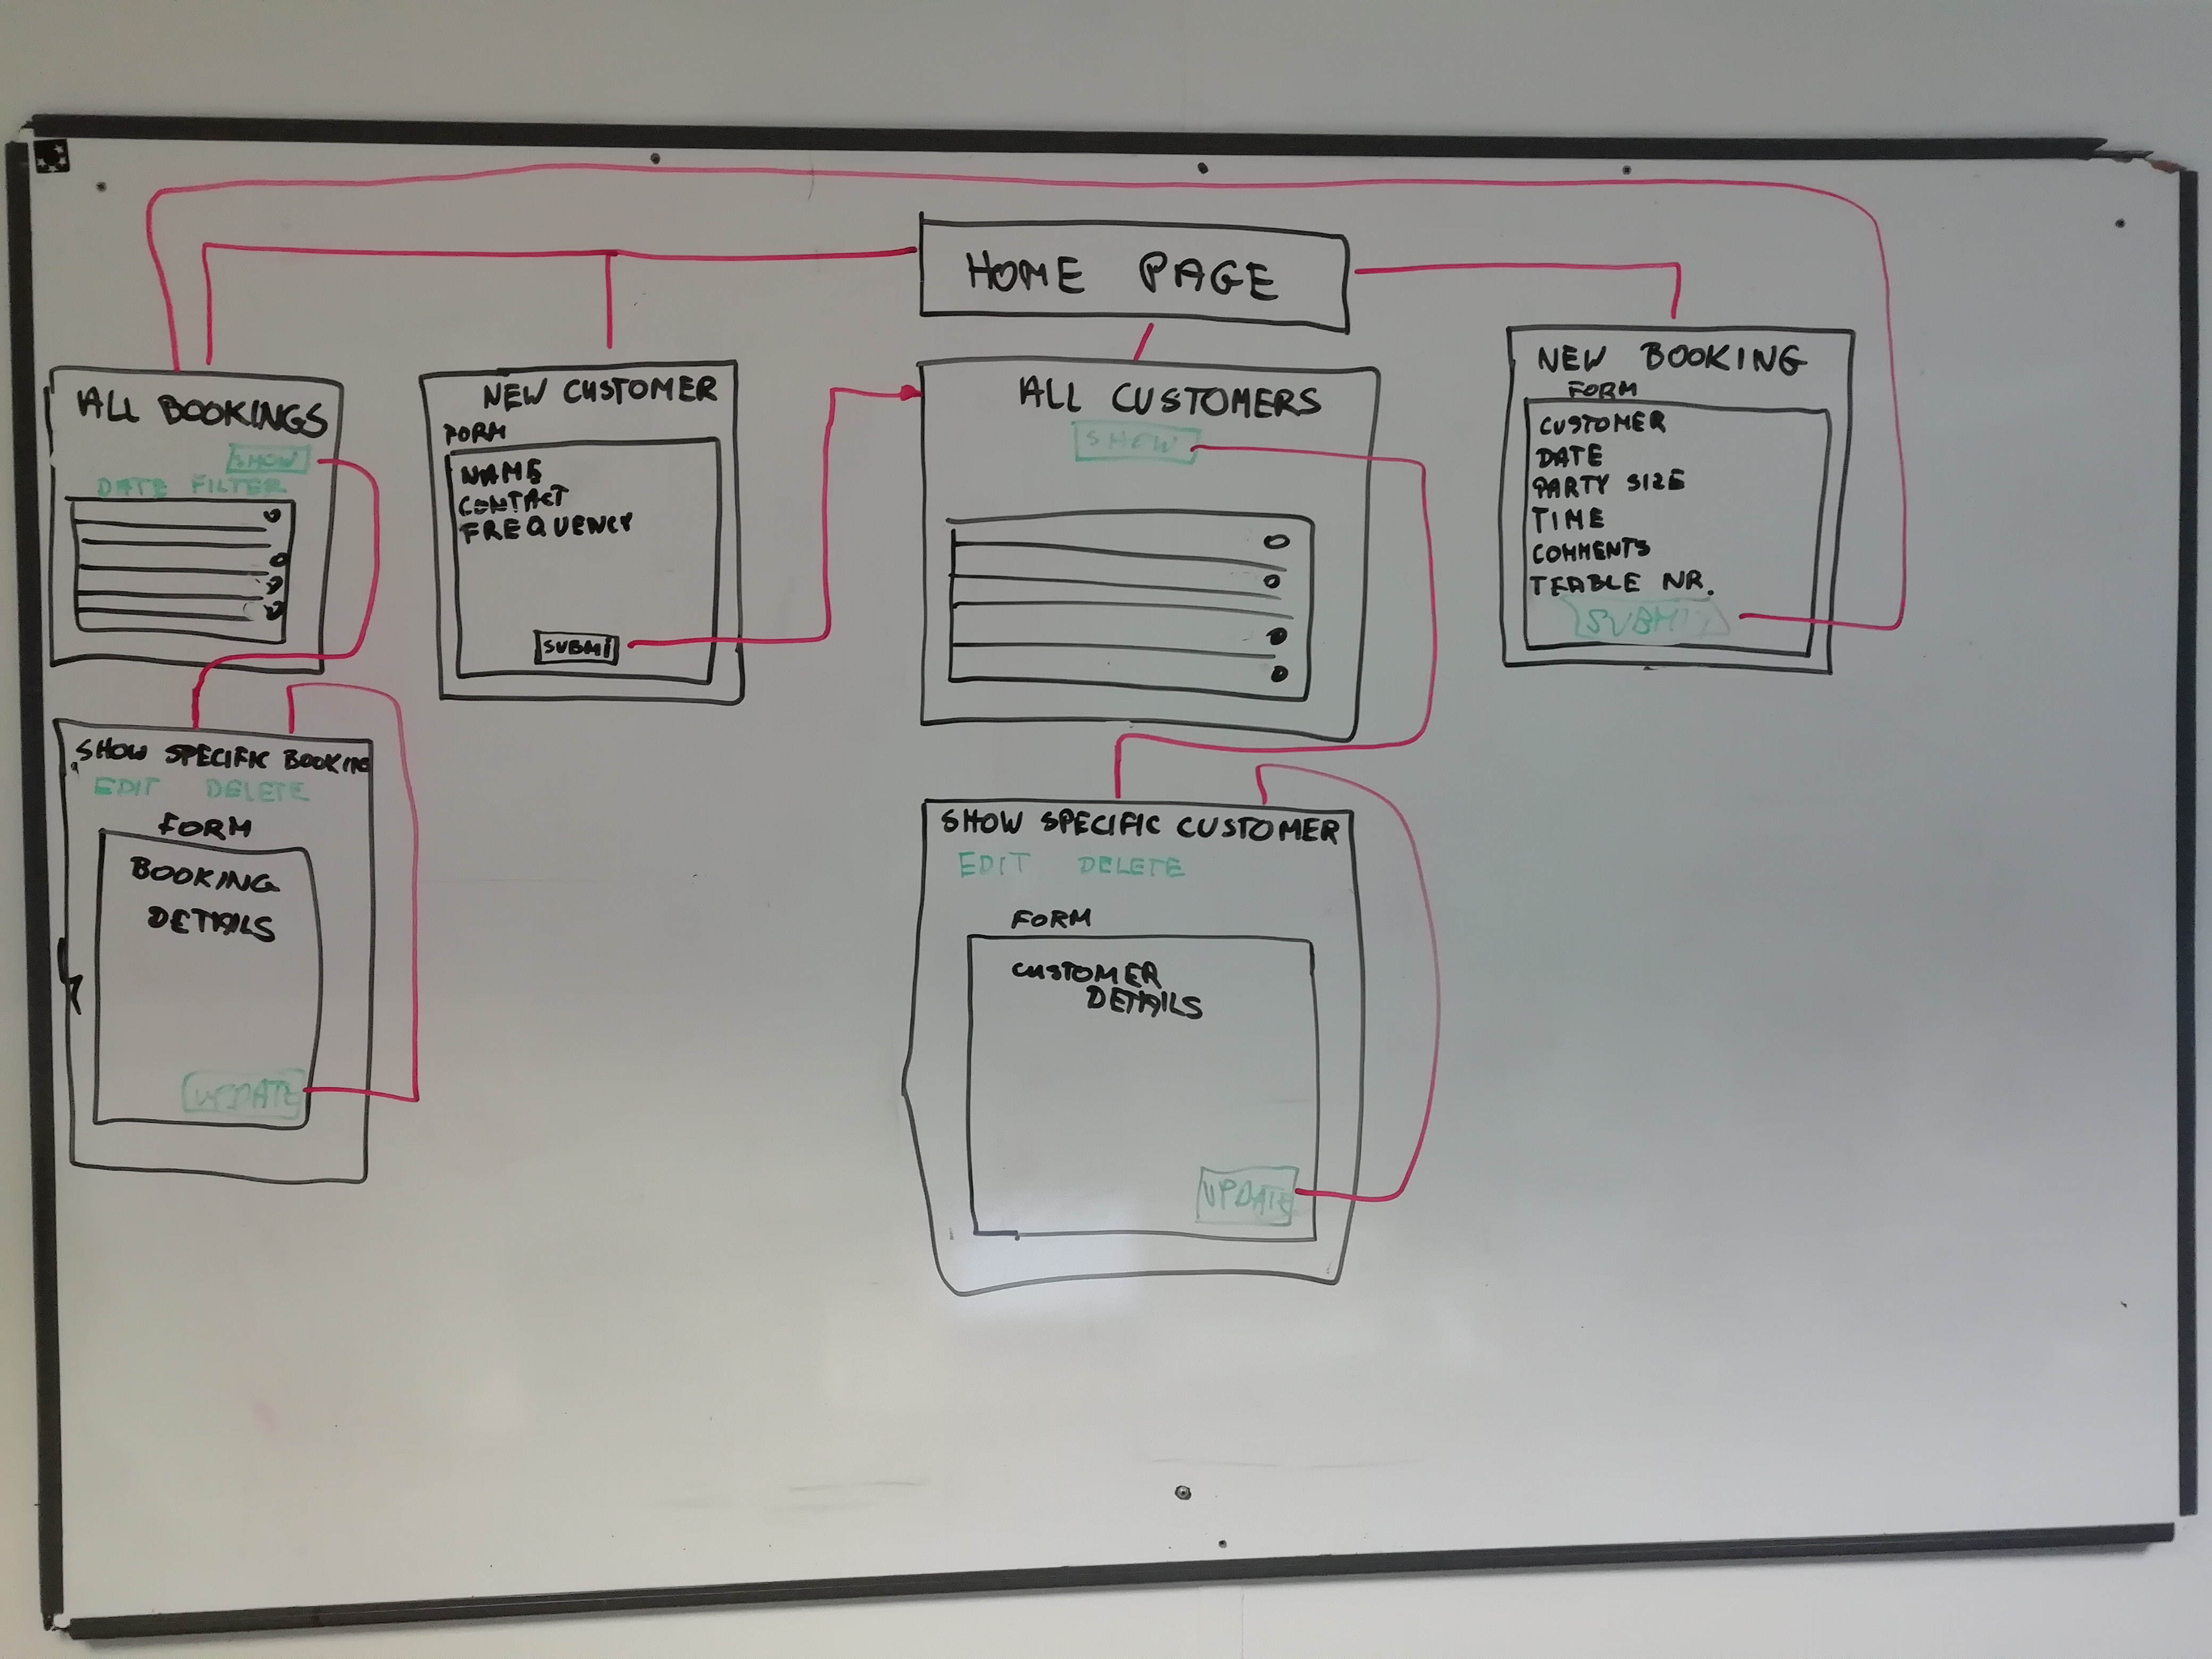 HOME PAGE
ALL BOOKINGS
SHOW
DATE FILTER
NEW CUSTOMER
FORM
NAME
CONTACT
FREQUENCY
SUBMI
ALL CUSTOMERS
SHOW
NEW BOOKING
FORM
CUSTOMER
DATE
PARTY SIZE
TIME
COMMENTS
TEABLE NR.
SUBMIT
SHOW SPECIFIC BOOKING
EDIT DELETE
FORM
BOOKING
DETAILS
UPDATE
SHOW SPECIFIC CUSTOMER
EDIT DELETE
FORM
CUSTOMER
DETAILS
UPDATE